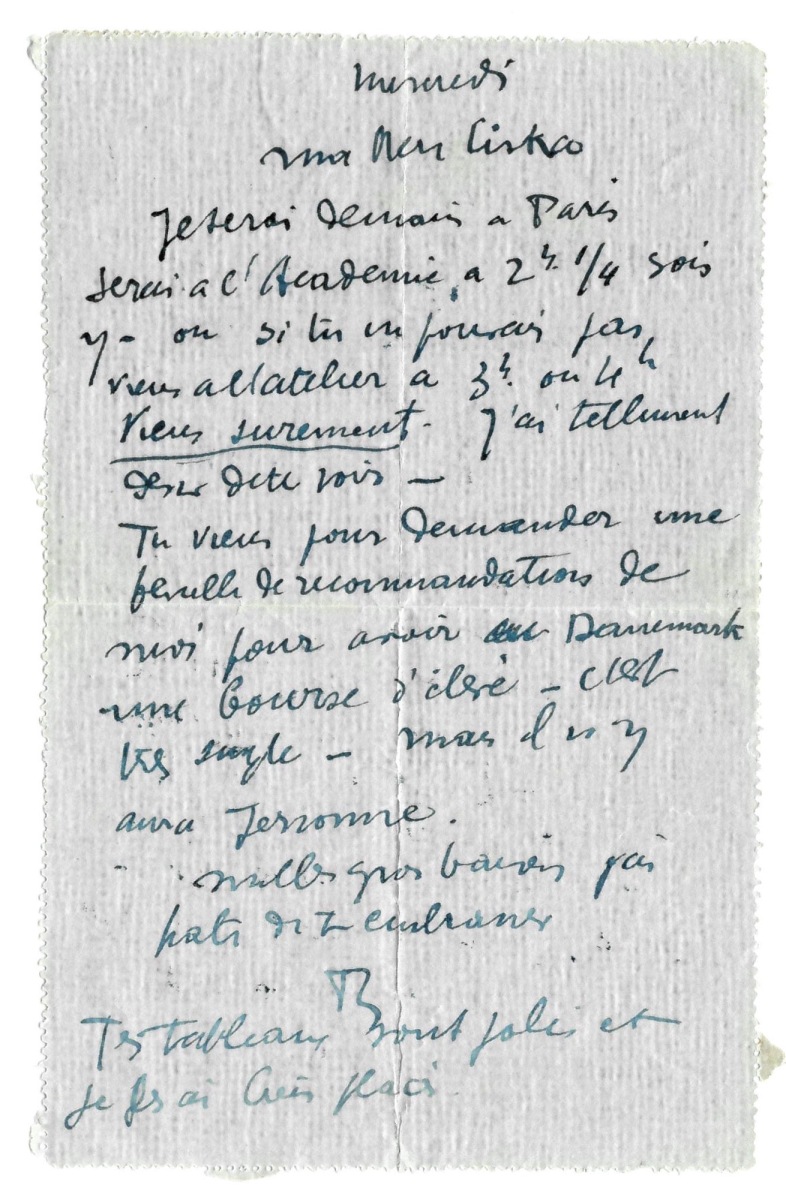 Mercredi
ma
Je serai demain a Paris
Serai a l'Academie, a 2h. 1/4 sois
y - ou si tu ne pouvais pas,
viens a l'atelier a 3h. ou 4h
Viens surement - J'ai tellement
desir de te voir —
Tu viens pour demander une
feuille de recommandations de
moi pour avoir au Danemark
une bourse d'
tres simple — mais il n y
aura personne.
milles gros baisers j'ai
hate de t embrasser
Tes tableaux sont jolis et
je les ai bien placés